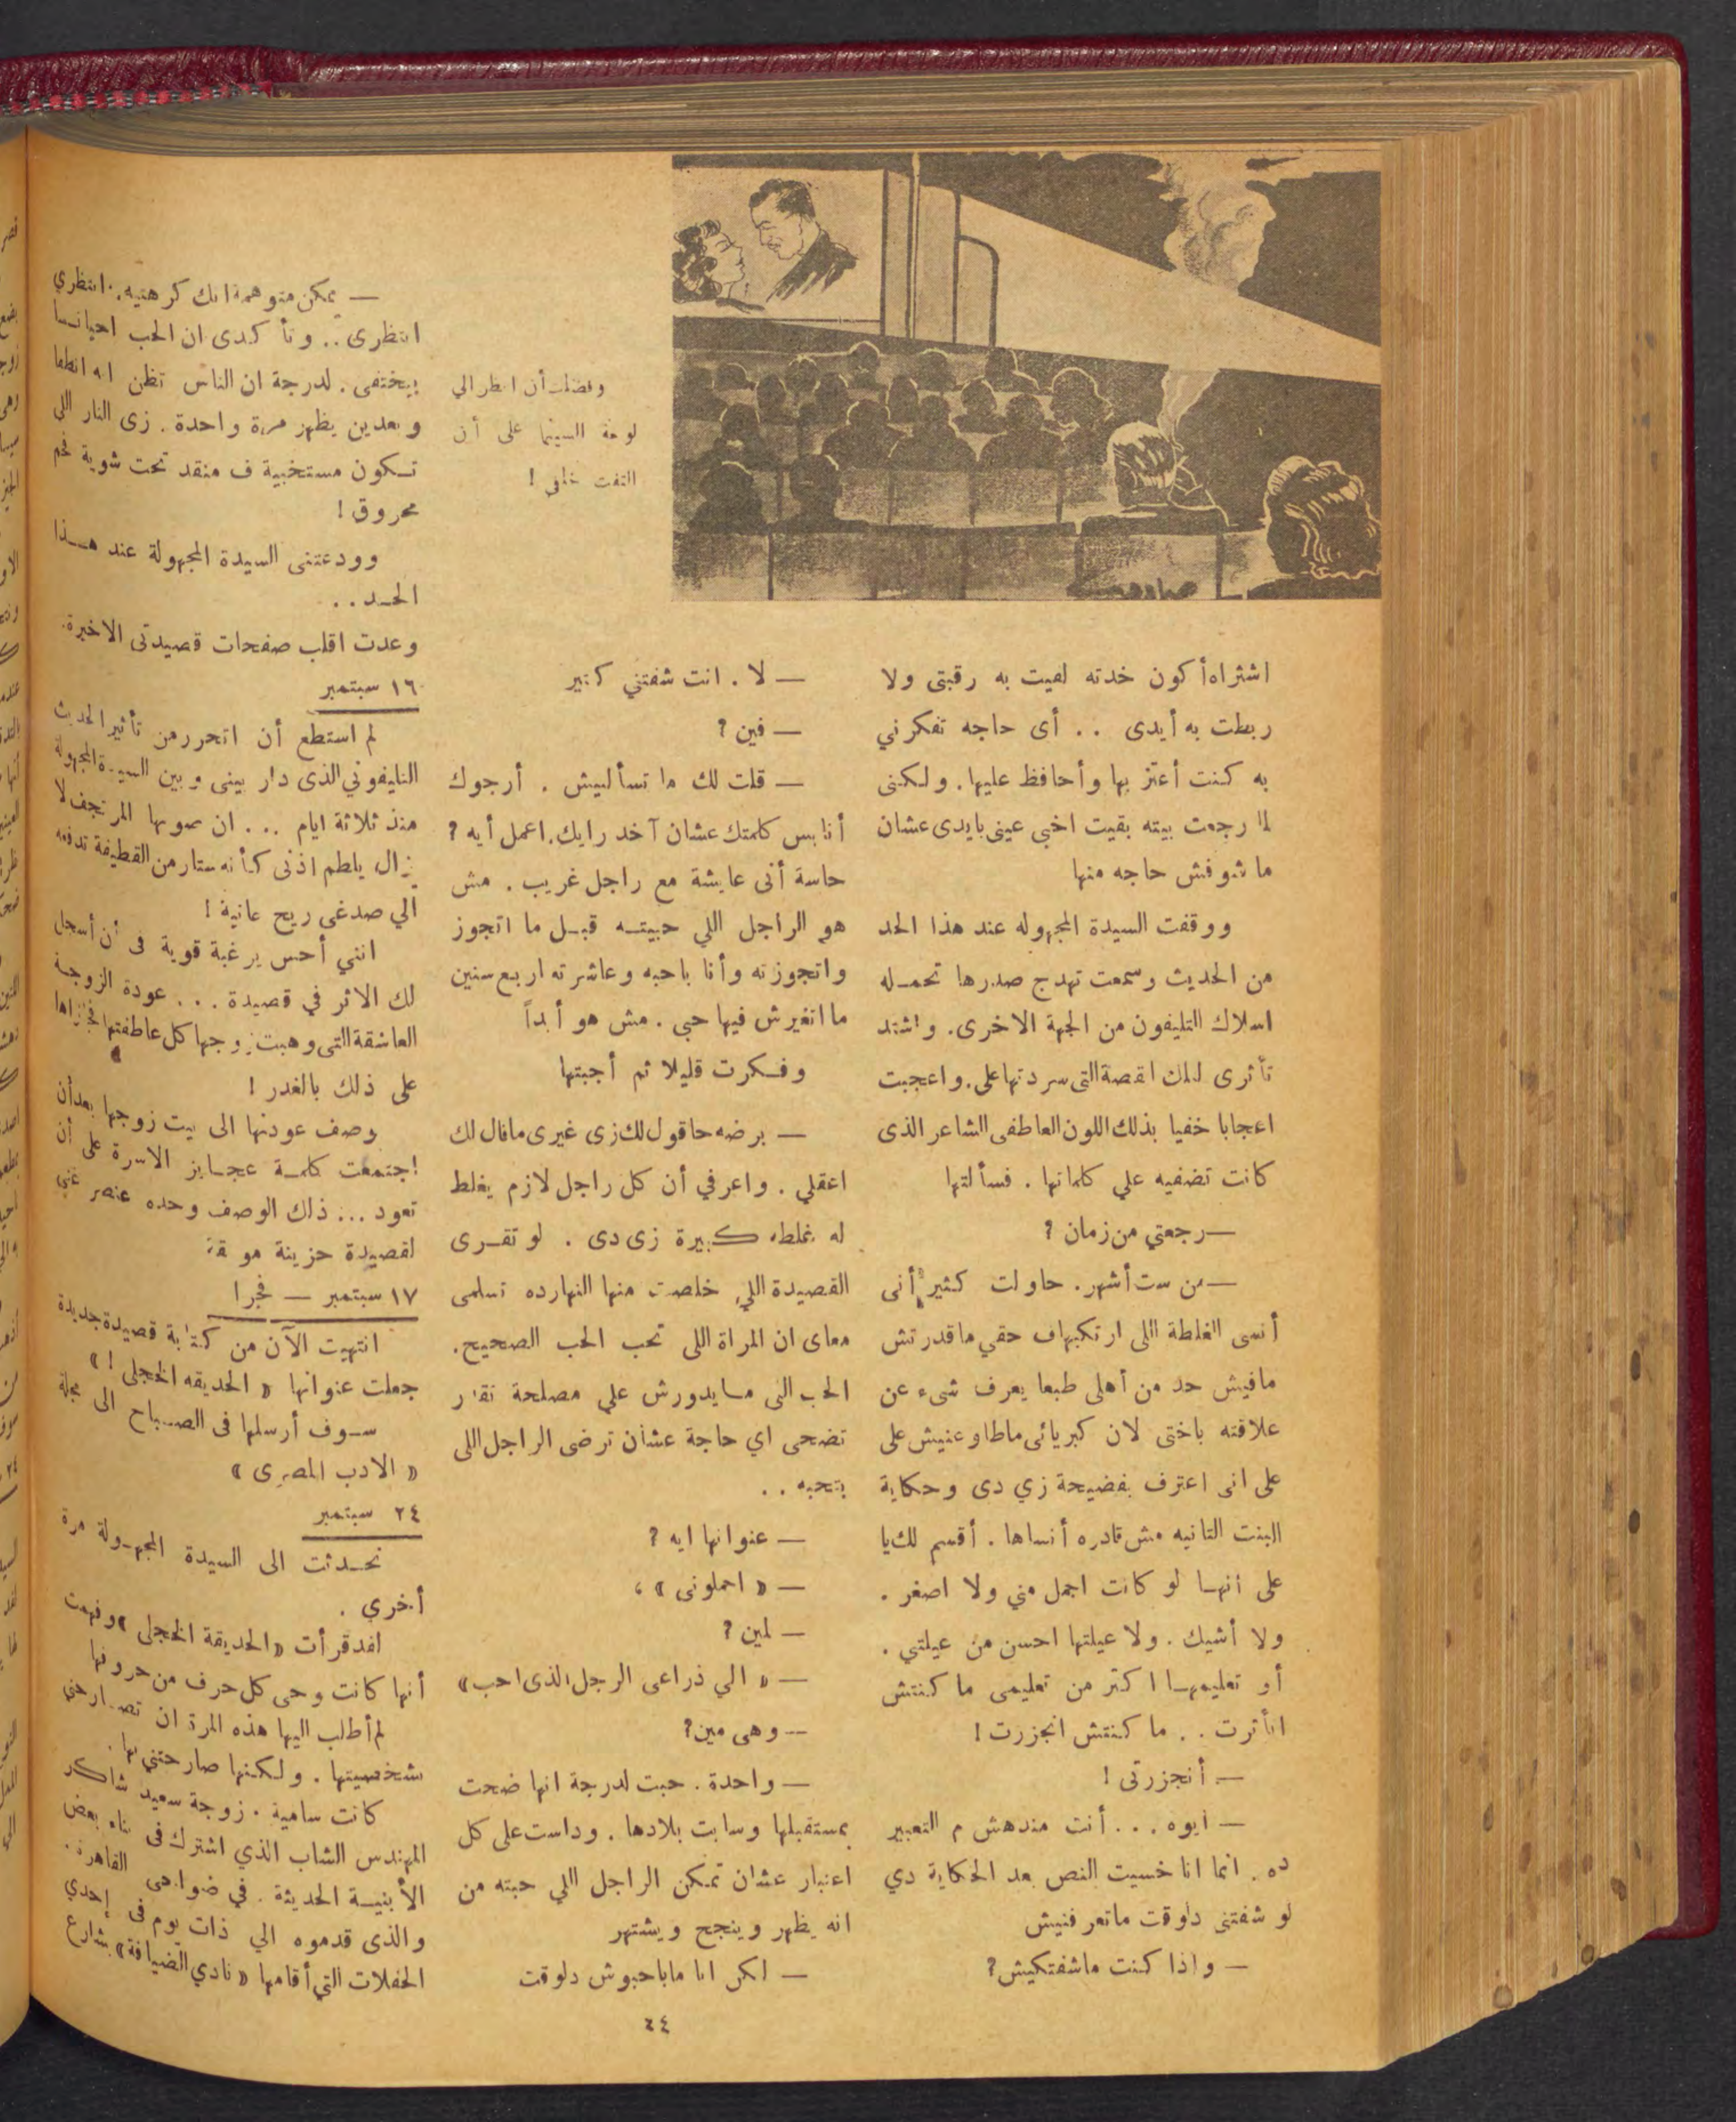 وفضلت أن انظر الي
لوحة السينما على أن
التفت خلفي !
اشتراه أكون خدته لفيت به رقبتى ولا
ربطت به أيدى . . أى حاجه تفكرني
به كنت أعتز بها وأحافظ عليها . ولكنى
لما رجعت بيته بقيت اخبى عينى بايدى عشان
ما شوفش حاجه منها
ووقفت السيدة المجهوله عند هذا الحد
من الحديث وسمعت تهدج صدرها تحمله
اسلاك التليفون من الجهة الاخرى . واشتد
تأثرى لتلك القصة التى سردتها على . واعجبت
اعجابا خفيا بذلك اللون العاطفى الشاعر الذى
كانت تضفيه علي كلماتها . فسألتها
— رجعتي من زمان ?
— من ست أشهر . حاولت كثير أنى
أنسى الغلطة اللى ارتكبها ف حقي ما قدرتش
مافيش حد من أهلى طبعا يعرف شىء عن
علاقته باختى لان كبريائى ماطاوعنيش على
على انى اعترف بفضيحة زي دى وحكاية
البنت التانيه مش قادره أنساها . أقسم لك يا
على انها لو كانت اجمل مني ولا اصغر .
ولا أشيك . ولا عيلتها احسن من عيلتي .
أو تعليمها اكتر من تعليمى ما كنتش
اتأثرت . . ما كنتش انجزرت !
— أنجزرتى !
— ايوه . . . أنت مندهش م التعبير
ده . انما انا خسيت النص بعد الحكاية دي
لو شفتنى دلوقت ماتعرفنيش
— واذا كنت ماشفتكيش ?
— لا . انت شفتني كتير
— فين ?
— قلت لك ما تسألنيش . أرجوك
أنا بس كلمتك عشان آخد رايك . اعمل أيه ?
حاسة أنى عايشة مع راجل غريب . مش
هو الراجل اللي حبيته قبل ما اتجوز
واتجوزته وأنا باحبه وعاشرته اربع سنين
ما اتغيرش فيها حبي . مش هو أبداً
وفكرت قليلا ثم أجبتها
— برضه حاقول لك زى غيرى ما قال لك
اعقلي . واعرفي أن كل راجل لازم يغلط
له غلطه كبيرة زى دى . لو تقرى
القصيدة اللي خلصت منها النهارده تسلمى
معاى ان المراة اللى تحب الحب الصحيح .
الحب اللى مايدورش علي مصلحة تقدر
تضحى اي حاجة عشان ترضى الراجل اللى
بتحبه . .
— عنوانها ايه ?
— « احملونى » ،
— لمين ?
— « الي ذراعى الرجل الذى احب »
— وهى مين ?
— واحدة . حبت لدرجة انها ضحت
بمستقبلها وسابت بلادها . وداست على كل
اعتبار عشان تمكن الراجل اللي حبته من
انه يظهر وينجح ويشتهر
— لكن انا ماباحبوش دلوقت
— يمكن متوهمة انك كرهتيه . انتظري
انتظرى . . وتأكدى ان الحب احيانا
بيختفى . لدرجة ان الناس تظن انه انطفا
وبعدين يظهر مرة واحدة . زى النار اللى
تكون مستخبية ف منقد تحت شوية فحم
محروق !
وودعتنى السيدة المجهولة عند هذا
الحد . .
وعدت اقلب صفحات قصيدتى الاخيرة .
١٦ سبتمبر
لم استطع أن اتحرر من تأثير الحديث
التليفوني الذى دار بينى وبين السيدة المجهولة
منذ ثلاثة ايام . . . ان صوتها المرتجف لا
يزال يلطم اذنى كأنه ستار من القطيفة تدفعه
الي صدغى ريح عاتية !
انني أحس برغبة قوية فى أن أسجل
لك الاثر في قصيدة . . . عودة الزوجة
العاشقة التى وهبت زوجها كل عاطفتها فجزاها
على ذلك بالغدر !
وصف عودتها الى بيت زوجها بعد أن
اجتمعت كلمة عجايز الاسرة على أن
تعود . . . ذلك الوصف وحده عنصر غني
لقصيدة حزينة موفقة
١٧ سبتمبر — فجرا
انتهيت الآن من كتابة قصيدة جديدة
جعلت عنوانها « الحديقه الخجلى ! »
سوف أرسلها فى الصباح الى مجلة
« الادب المصرى »
٢٤ سبتمبر
تحدثت الى السيدة المجهولة مرة
أخري .
لقد قرأت « الحديقة الخجلى » وفهمت
أنها كانت وحى كل حرف من حروفها
لم أطلب اليها هذه المرة ان تصارحنى
بشخصيتها . ولكنها صارحتني بها .
كانت سامية . زوجة سعيد شاكر
المهندس الشاب الذي اشترك فى بناء بعض
الأبنية الحديثة . في ضواحى القاهرة .
والذى قدموه الي ذات يوم فى إحدي
الحفلات التي أقامها « نادي الضيافة » بشارع
٢٤